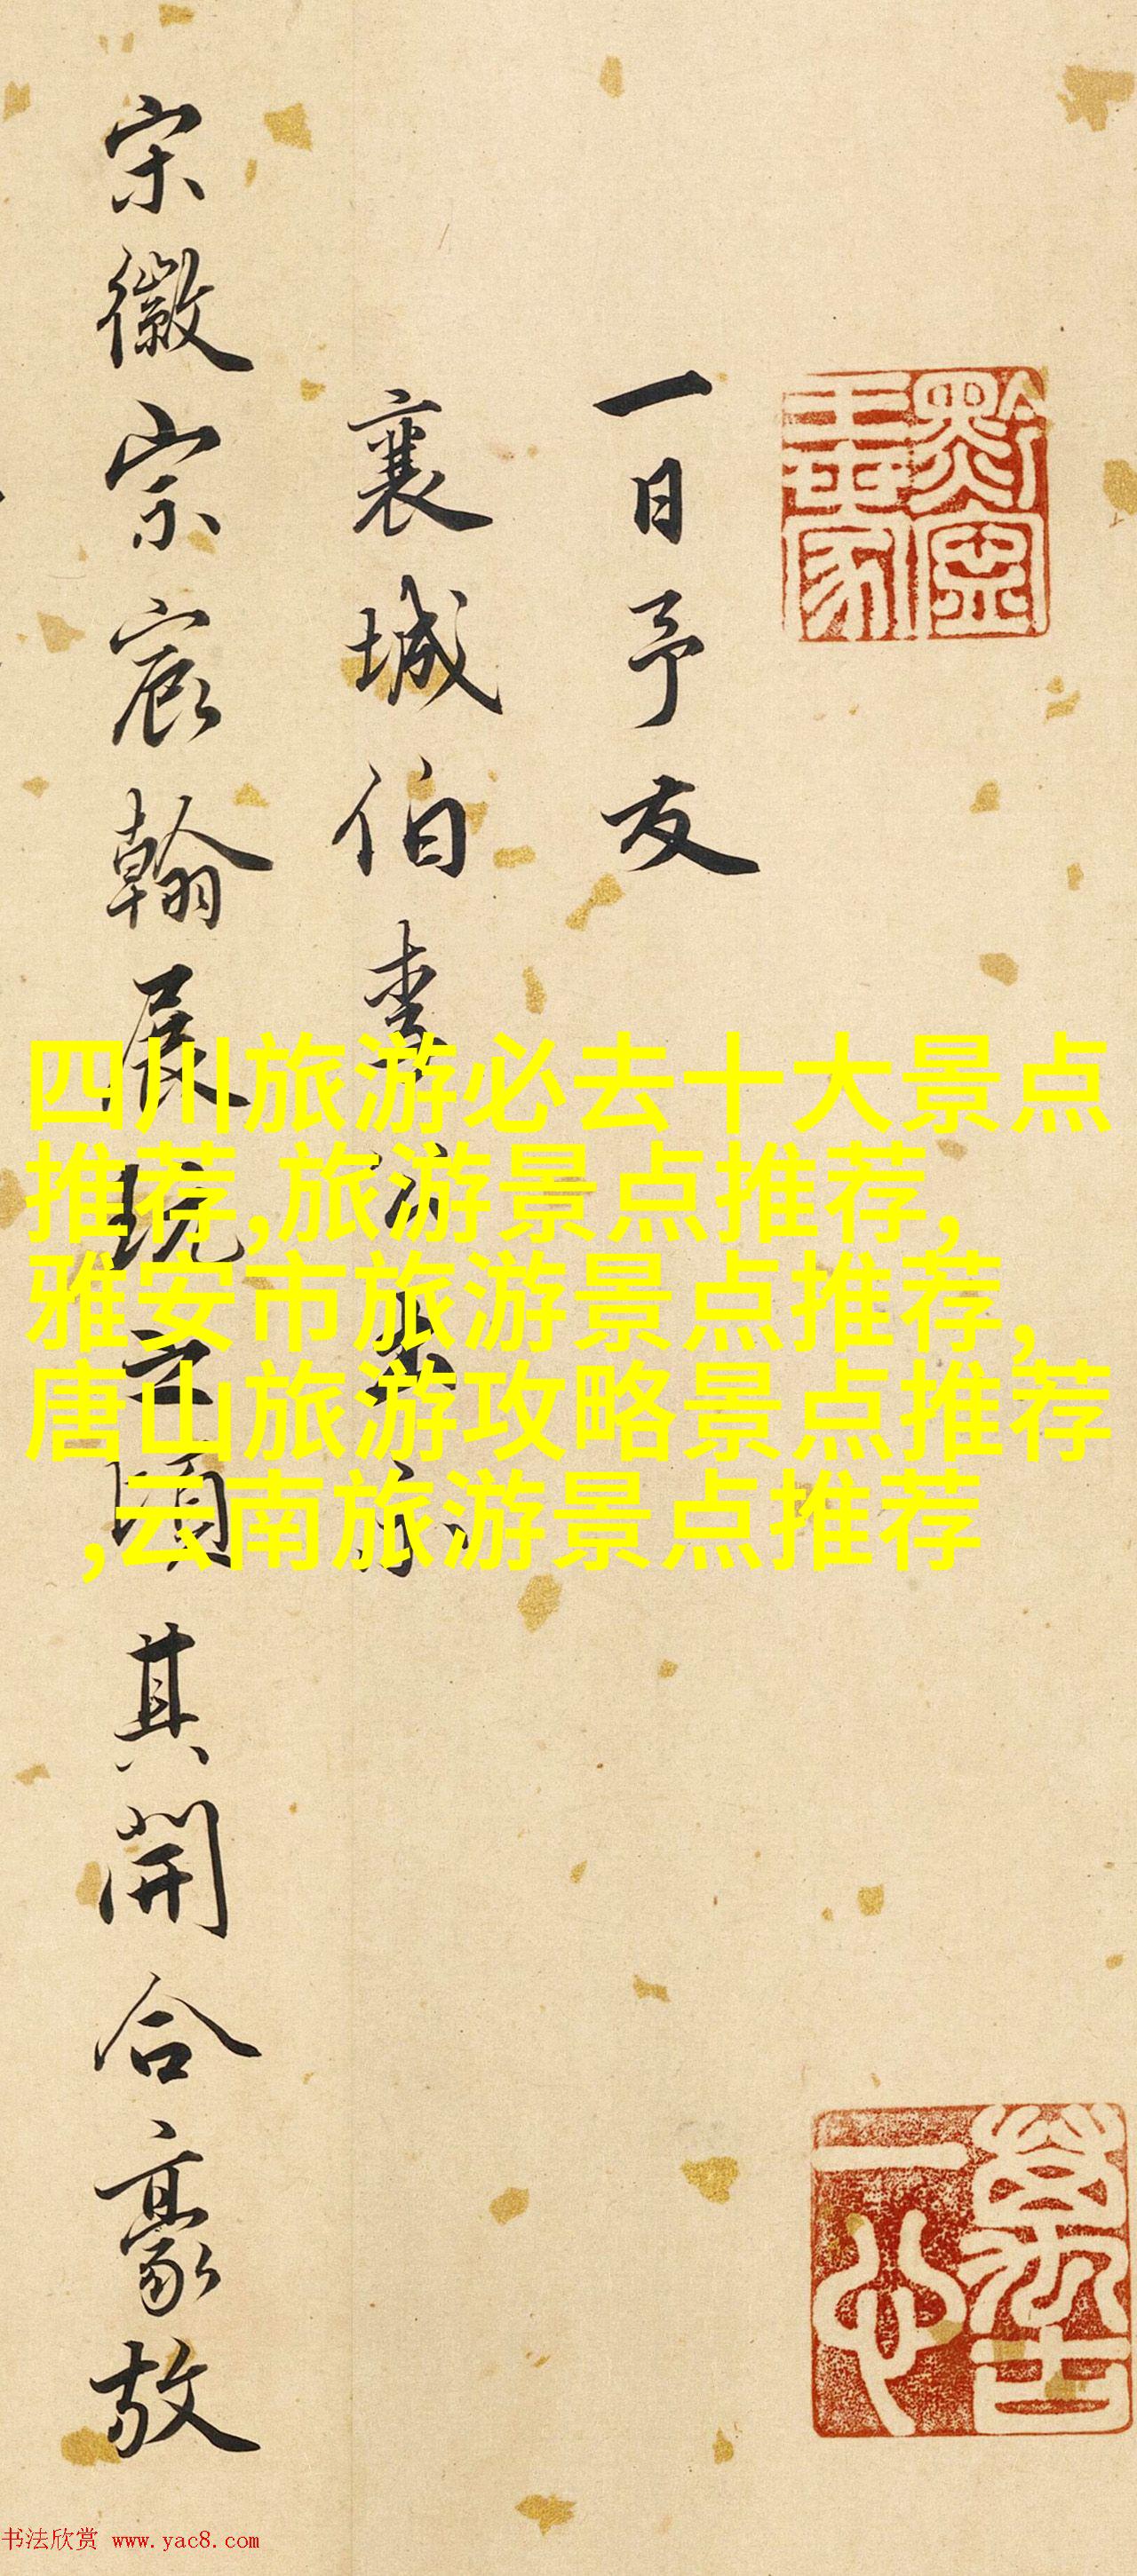 一日予友
襄城伯李公出示
宋徽宗宸翰展玩之頃其開合豪放
四川旅游必去十大景点
推荐,旅游景点推荐,
雅安市旅游景点推荐,
唐山旅游攻略景点推荐
,云南旅游景点推荐
书法欣赏 www.yac8.com